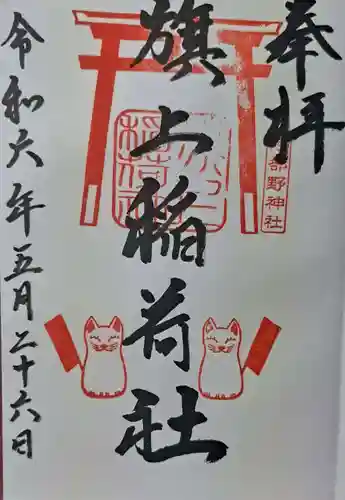 奉拝
旗上稲荷社
令和六年五月二十六日
野神社